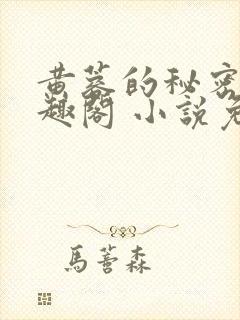 黄蓉的秘密
趣閣 小說免
馬蕓森